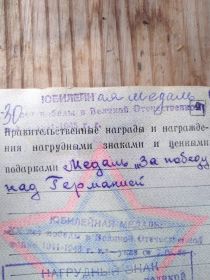 ЮБИЛЕЙНАЯ Медаль
-30 лет победы в Великой Отечественной
войне 1941-1945 г. г.
Правительственные награды и награжде-
ния нагрудными знаками и ценными
подарками Медаль „За победу
над Германией
ЮБИЛЕЙНАЯ МЕДАЛЬ
лет победы в Великой Отечественной
войне 1941-1945 г. г.
НАГРУДНЫЙ ЗНАК